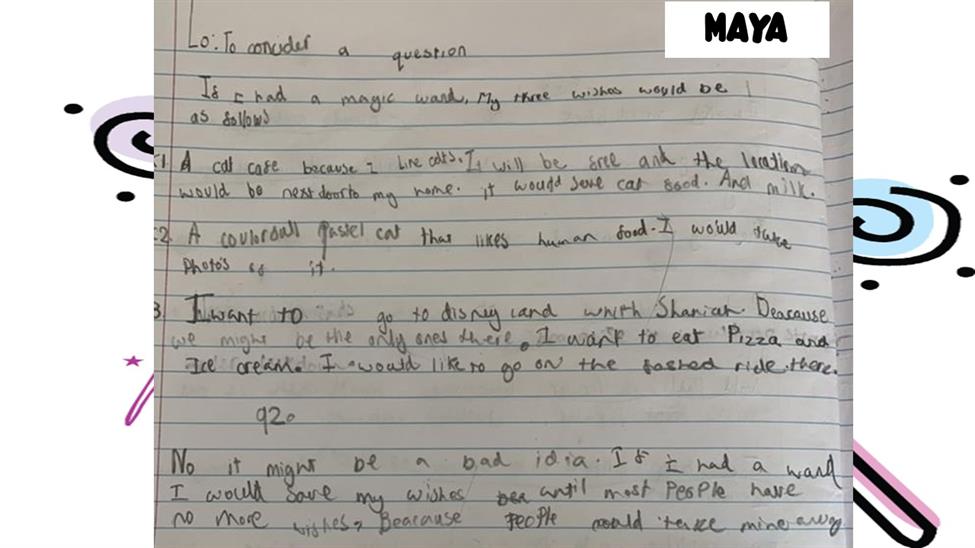 MAYA
Lo: To concider a question
If I had a magic wand, My three wishes would be
as follows
1. A cat cafe because I like cats. It will be free and the location
would be next door to my home. it would serve cat food. And milk.
2. A coulorfull Pastel cat that likes human food. I would take
Photo's of it.
3. I want to go to disney land whith Shaniah Beacause
we might be the only ones there. I want to eat Pizza and
Ice cream. I would like to go on the fasted ride there.
q2.
No it might be a bad idia. If I had a wand
I would save my wishes until most People have
no more wishes, Beacause People could take mine away